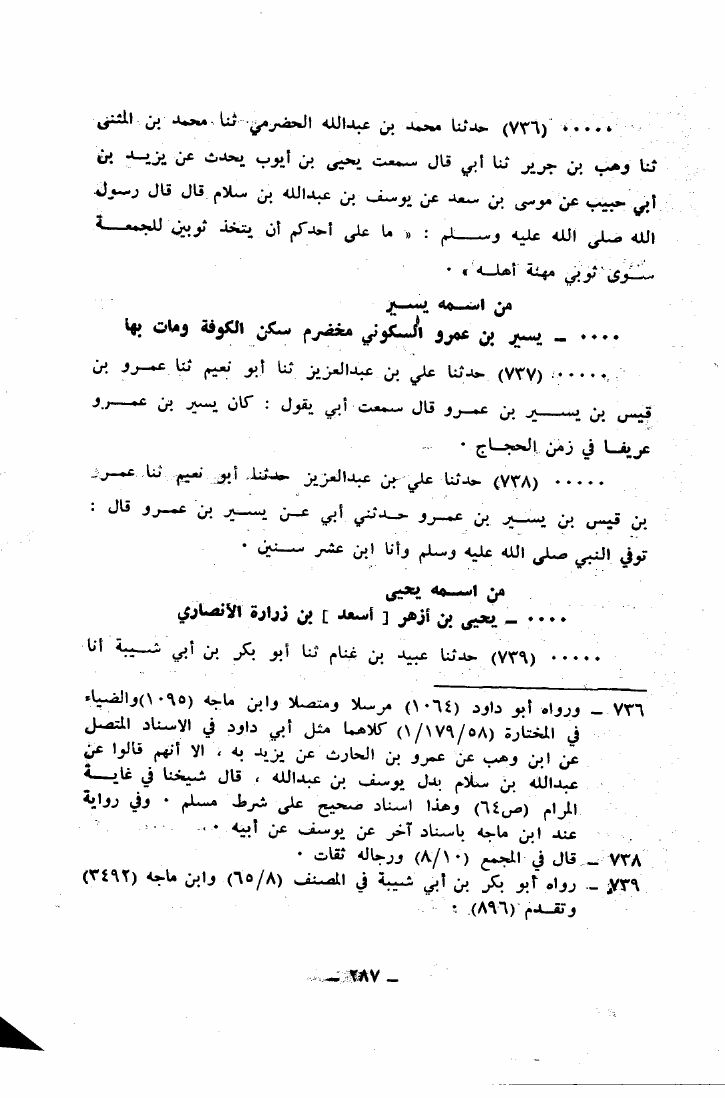 ٠٠٠٠٠ (٧٣٦) حدثنا محمد بن عبدالله الحضرمي ثنا محمد بن المثنى
ثنا وهب بن جرير ثنا أبي قال سمعت يحيى بن أيوب يحدث عن يزيد بن
أبي حبيب عن موسى بن سعد عن يوسف بن عبدالله بن سلام قال قال رسول
الله صلى الله عليه وسلم : « ما على أحدكم أن يتخذ ثوبين للجمعة
سوى ثوبي مهنة أهله » ٠
من اسمه يسير
٠٠٠٠ ــ يسير بن عمرو السكوني مخضرم سكن الكوفة ومات بها
٠٠٠٠٠ (٧٣٧) حدثنا علي بن عبدالعزيز ثنا أبو نعيم ثنا عمرو بن
قيس بن يسير بن عمرو قال سمعت أبي يقول : كان يسير بن عمرو
عريفا في زمن الحجاج ٠
٠٠٠٠٠ (٧٣٨) حدثنا علي بن عبدالعزيز حدثنا أبو نعيم ثنا عمرو
بن قيس بن يسير بن عمرو حدثني أبي عن يسير بن عمرو قال :
توفي النبي صلى الله عليه وسلم وأنا ابن عشر سنين ٠
من اسمه يحيى
٠٠٠٠ ــ يحيى بن أزهر [ أسعد ] بن زرارة الأنصاري
٠٠٠٠٠ (٧٣٩) حدثنا عبيد بن غنام ثنا أبو بكر بن أبي شيبة أنا
٧٣٦ ــ ورواه أبو داود (١٠٦٤) مرسلا ومتصلا وابن ماجه (١٠٩٥) والضياء
في المختارة (١/١٧٩/٥٨) كلاهما مثل أبي داود في الاسناد المتصل
عن ابن وهب عن عمرو بن الحارث عن يزيد به ، الا أنهم قالوا عن
عبدالله بن سلام بدل يوسف بن عبدالله ، قال شيخنا في غاية
المرام (ص٦٤) وهذا اسناد صحيح على شرط مسلم ٠ وفي رواية
عند ابن ماجه باسناد آخر عن يوسف عن أبيه ٠
٧٣٨ ــ قال في المجمع (٨/١٠) ورجاله ثقات ٠
٧٣٩ ــ رواه أبو بكر بن أبي شيبة في المصنف (٦٥/٨) وابن ماجه (٣٤٩٢)
وتقدم (٨٩٦) ٠
ــ ٢٨٧ ــ